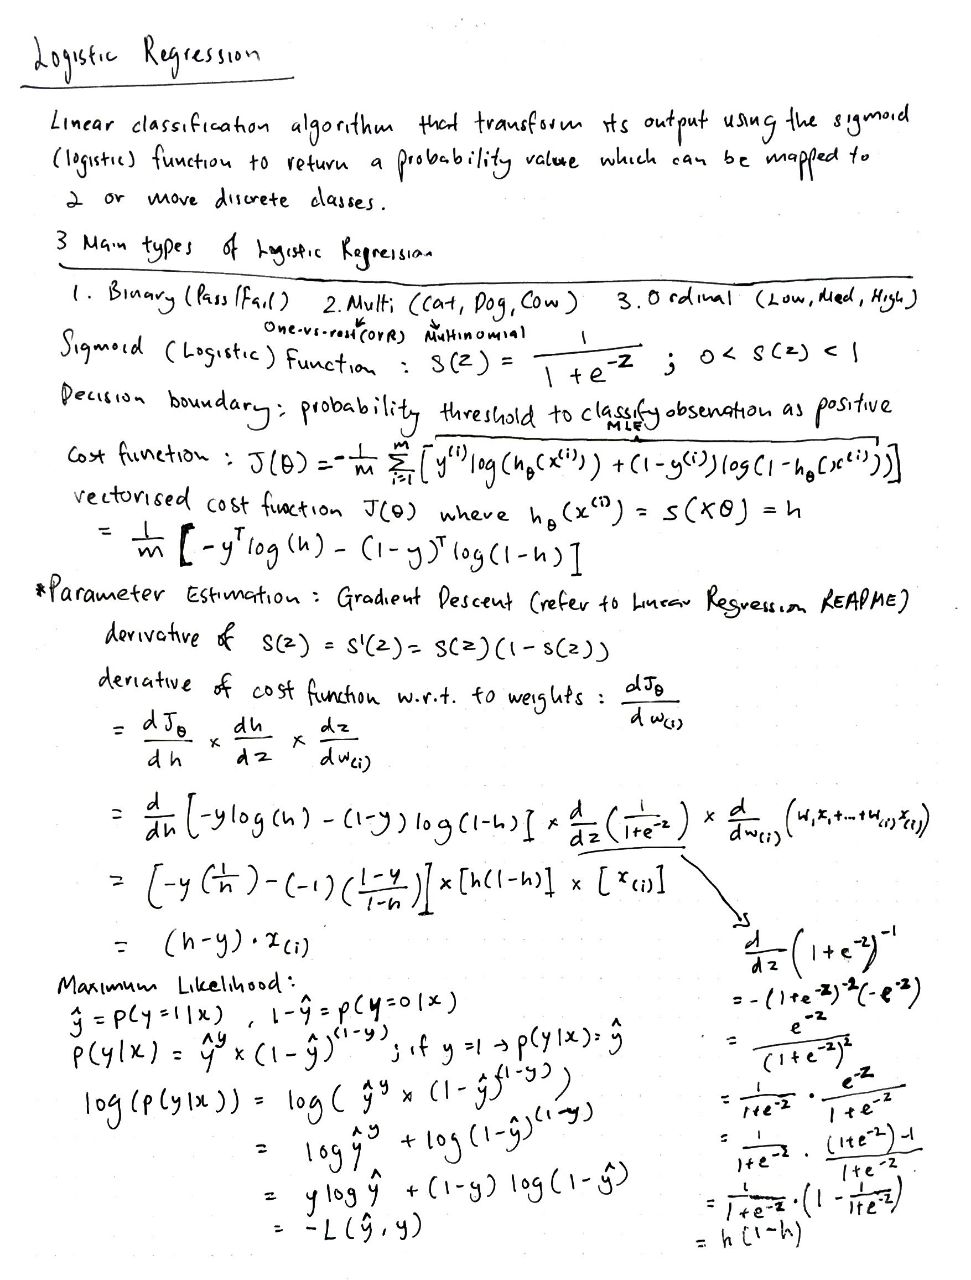 Logistic Regression
Linear classification algorithm that transform its output using the sigmoid
(logistic) function to return a probability value which can be mapped to
2 or more discrete classes.
3 Main types of Logistic Regression
1. Binary (Pass/Fail) 2. Multi (Cat, Dog, Cow) 3. Ordinal (Low, Med, High)
One-vs-rest (OVR) Multinomial
Sigmoid (Logistic) Function : S(z) = 1/(1+e^-z) ; 0 < S(z) < 1
Decision boundary : probability threshold to classify observation as positive
MLE
Cost function : J(θ) = -1/m Σ_{i=1}^{m} [y^(i) log(h_θ(x^(i))) + (1-y^(i)) log(1-h_θ(x^(i)))]
vectorised cost function J(θ) where h_θ(x^(i)) = S(Xθ) = h
= 1/m [-y^T log(h) - (1-y)^T log(1-h)]
*Parameter Estimation : Gradient Descent (refer to Linear Regression README)
derivative of S(z) = S'(z) = S(z)(1-S(z))
deriative of cost function w.r.t. to weights : dJ_θ/dw_(i)
= dJ_θ/dh × dh/dz × dz/dw_(i)
= d/dh [-y log(h) - (1-y) log(1-h)] × d/dz (1/(1+e^-z)) × d/dw_(i) (w_1x_1+...+w_(i)x_(i))
= [-y(1/h) - (-1)((1-y)/(1-h))] × [h(1-h)] × [x_(i)]
= (h-y) · x_(i)
Maximum Likelihood :
ŷ = P(y=1|x) , 1-ŷ = P(y=0|x)
P(y|x) = ŷ^y × (1-ŷ)^(1-y) ; if y=1 → p(y|x) = ŷ
log(P(y|x)) = log(ŷ^y × (1-ŷ)^(1-y))
= log ŷ^y + log(1-ŷ)^(1-y)
= y log ŷ + (1-y) log(1-ŷ)
= -L(ŷ, y)
d/dz (1+e^-z)^-1
= -(1+e^-z)^-2 (-e^-z)
= e^-z/(1+e^-z)^2
= 1/(1+e^-z) · e^-z/(1+e^-z)
= 1/(1+e^-z) · ((1+e^-z)-1)/(1+e^-z)
= 1/(1+e^-z) · (1 - 1/(1+e^-z))
= h(1-h)